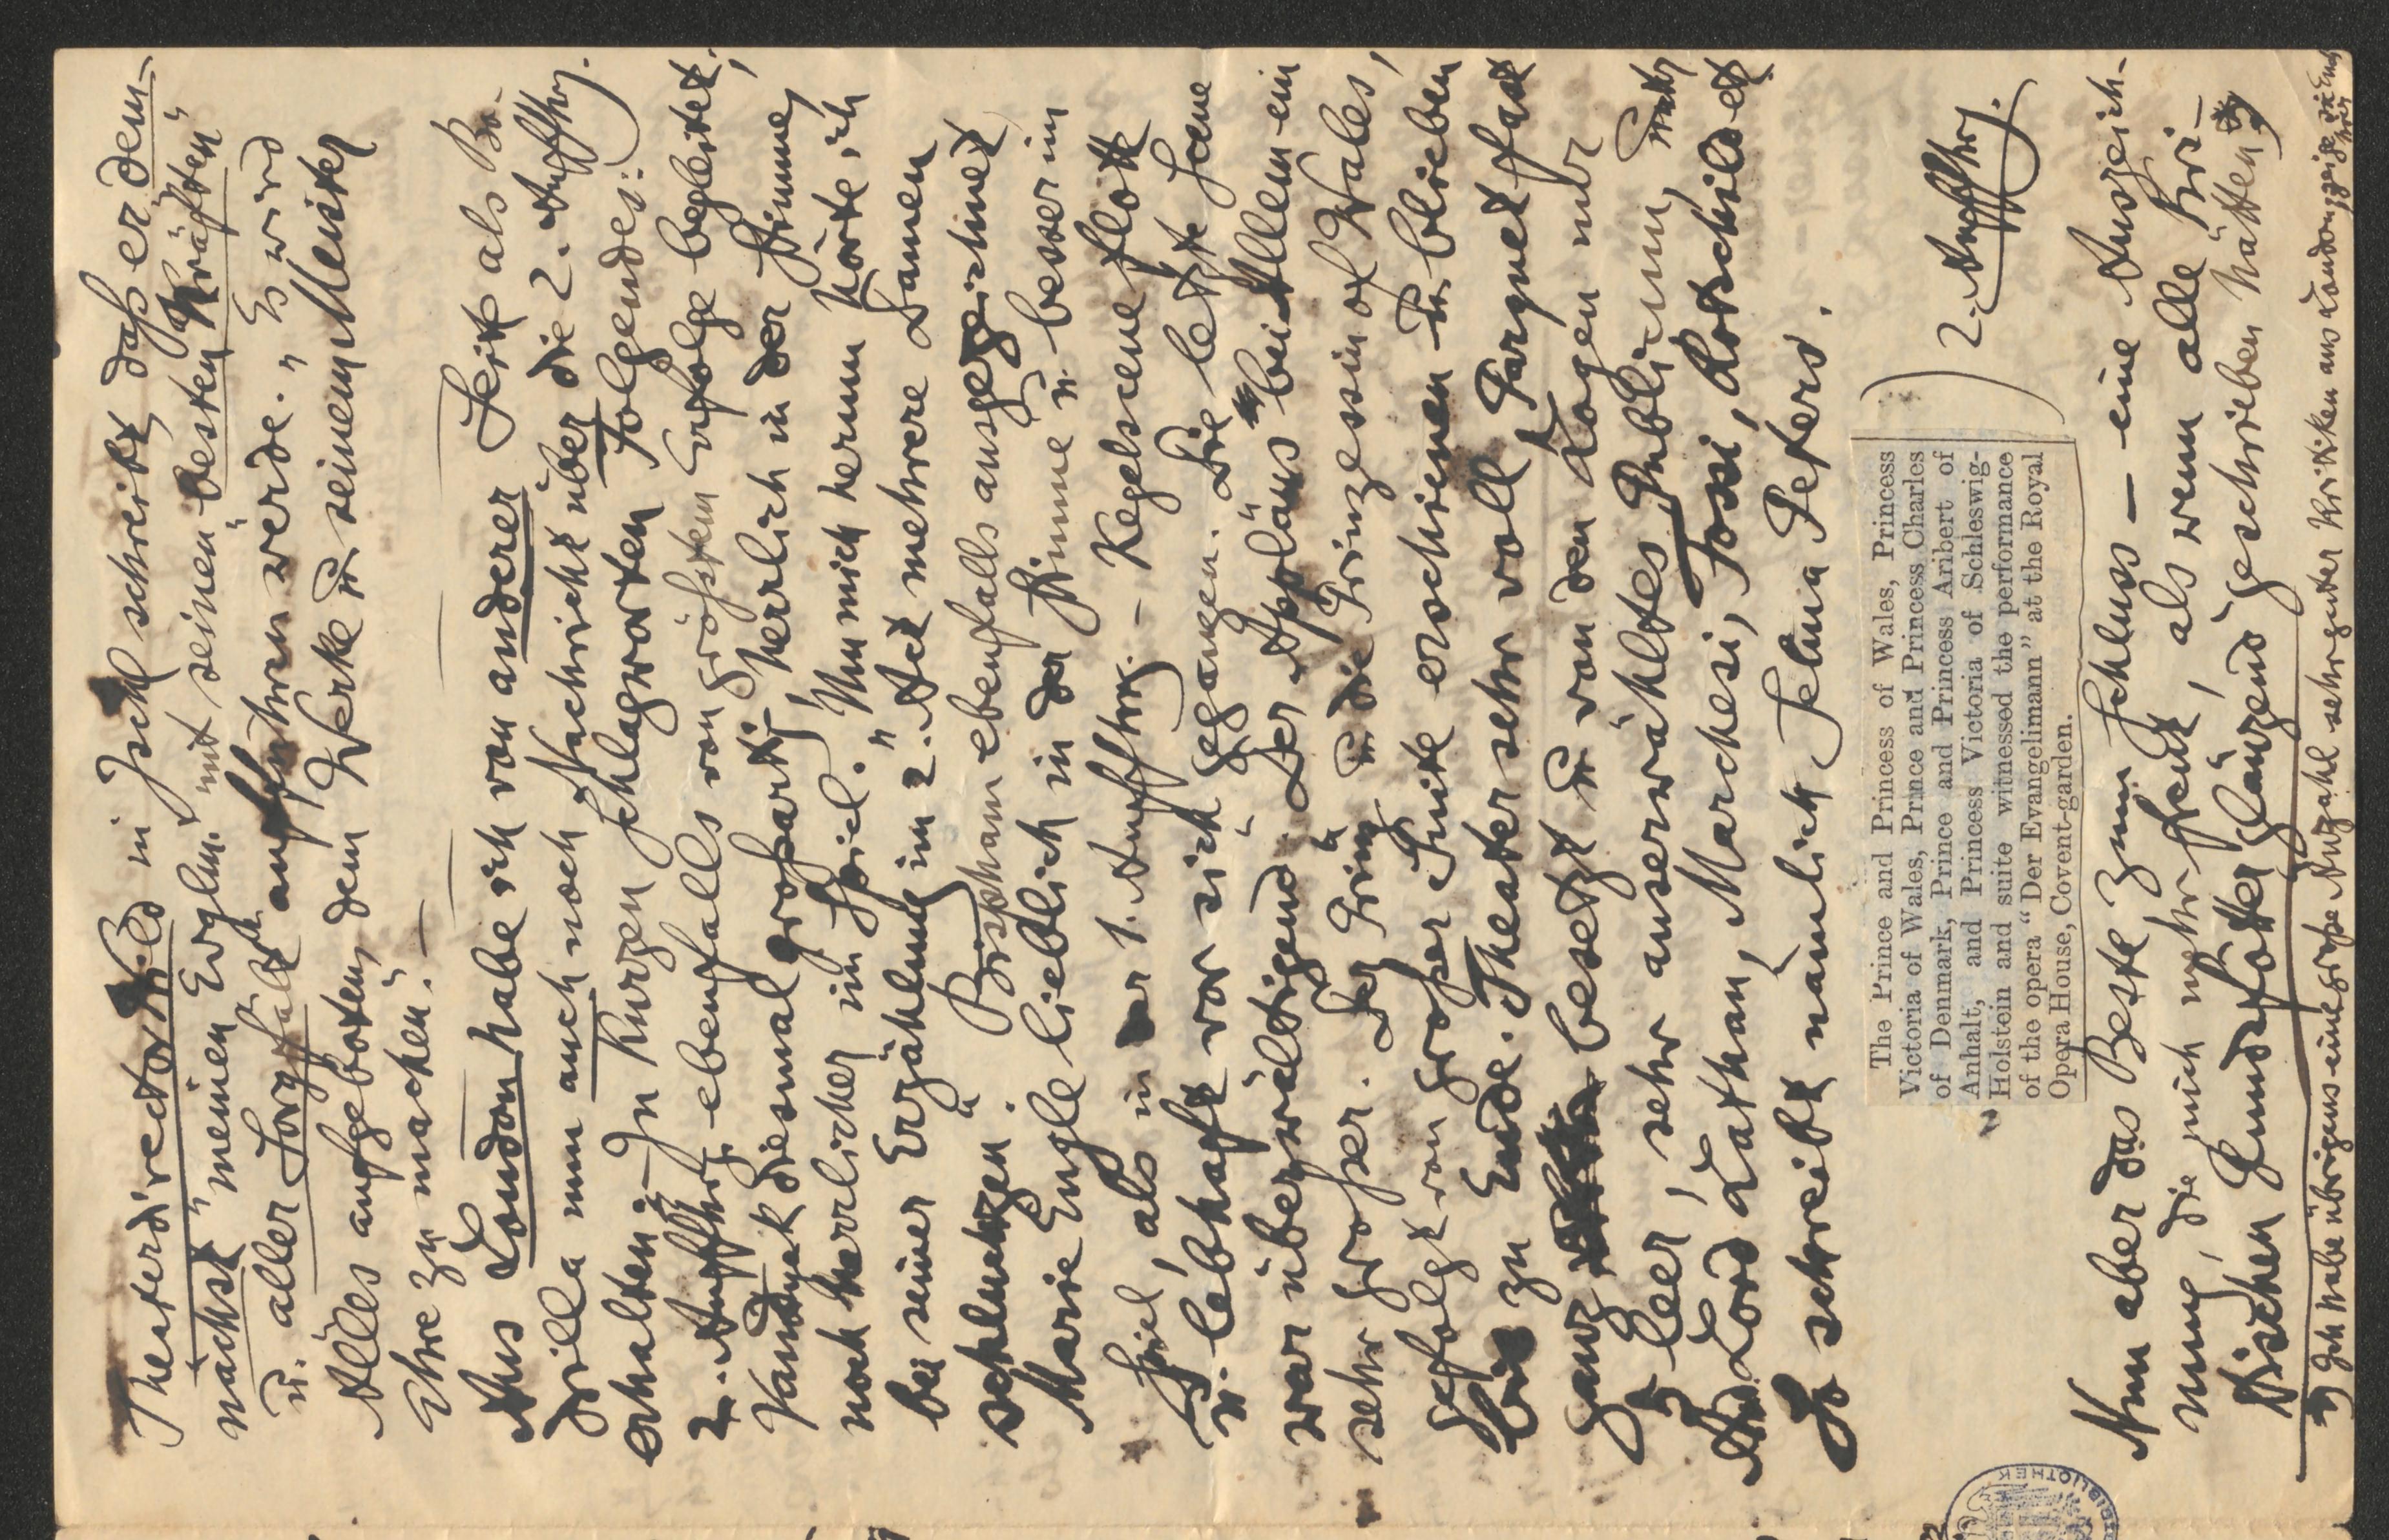 Theaterdirector Wild in Ischl schreibt, daß er dem-
nächst „meinen Evglm. mit seinen „besten Kräften“
u. aller Sorgfalt“ aufführen werde. „Es wird
Alles aufgeboten, dem Werke u. seinem Meister
Ehre zu machen“. —
Aus London habe ich von anderer Seite als Bo-
dilla nun auch noch Nachricht über die 2. Auffhrg.
erhalten. – In kurzen Schlagworten Folgendes:
2. Auffhrg. ebenfalls von größtem Erfolge begleitet,
Vandyck diesmal großartig, herrlich in der Stimme,
noch herrlicher im Spiel. „Um mich herum hörte ich
bei seiner Erzählung im 2. Act mehrere Damen
schluchzen“. Bispham ebenfalls ausgezeichnet
Marie Engle lieblich in der Stimme u. besser im
Spiel, als in der 1. Auffhrg. – Kegelscene flott
u. lebhaft vor sich gegangen. Die letzte Scene
war überwältigend. Der Applaus bei Allem ein
sehr großer. Der Prinz u. die Prinzessin of Wales,
gefolgt von großer Suite erschienen u. blieben
bis zu Ende. Theater sehr voll, Parquet fast
ganz besetzt u. von den Logen nur
2 leer, sehr auserwähltes Publicum,
Lord Lathan, Marchesi, Tosti, Rotschild etc.
So schreibt nämlich Selma Peters.
The Prince and Princess of Wales, Princess
Victoria of Wales, Prince and Princess Charles
of Denmark, Prince and Princess Aribert of
Anhalt, and Princess Victoria of Schleswig-
Holstein and suite witnessed the performance
of the opera “Der Evangelimann” at the Royal
Opera House, Covent-garden.
) 2. Auffhrg.
Nun aber das Beste zum Schluss – eine Auszeich-
nung, die mich mehr freut, als wenn alle Kri-
tischen Hundsfötter „glänzend“ geschrieben hätten
*) Ich habe übrigens eine große Anzahl sehr guter Kritiken aus London,
BIBLIOTHEK